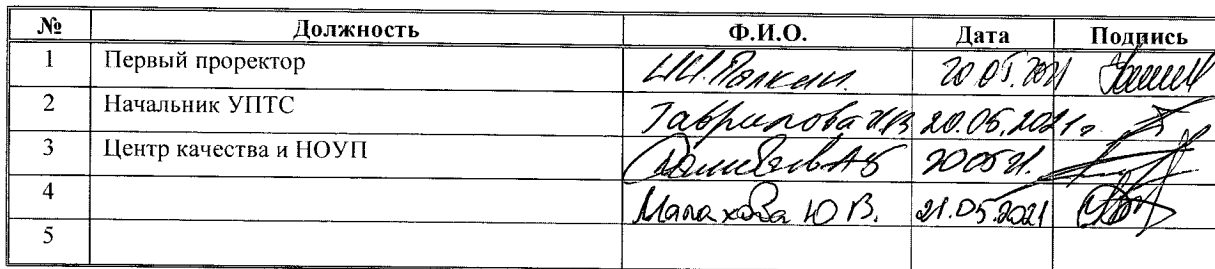 № Должность Ф.И.О. Дата Подпись
1 Первый проректор И.И. Палкин 20.05.2021
2 Начальник УПТС Гаврилова 20.05.2021г.
3 Центр качества и НОУП 20 05 21.
4 Малахова Ю В. 21.05.2021
5